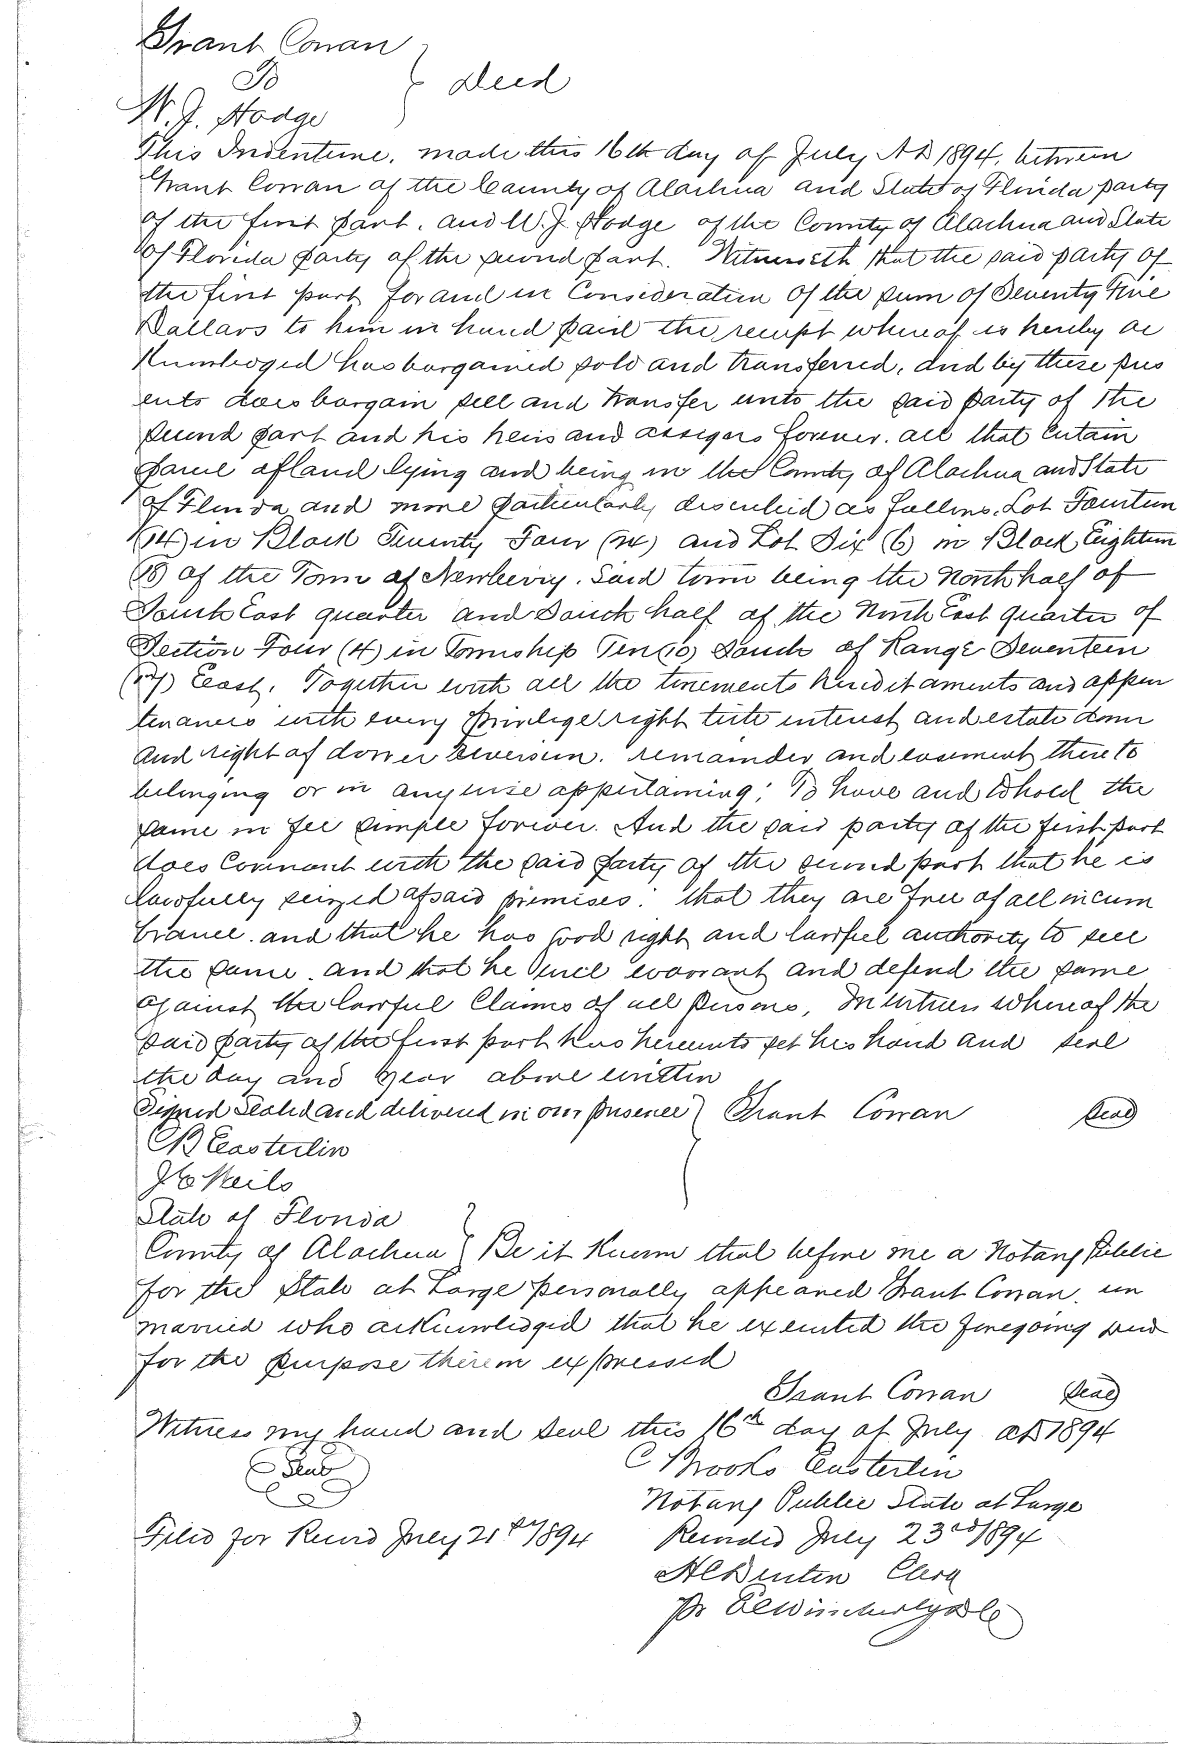 Grant Cowan
To
Deed
W. J. Hodge
This Indenture, made this 16th day of July A D 1894, between
Grant Cowan of the County of Alachua and State of Florida party
of the first part, and W. J. Hodge of the County of Alachua and State
of Florida party of the second part. Witnesseth that the said party of
the first part for and in Consideration of the sum of Seventy Five
Dollars to him in hand paid the receipt whereof is hereby ac
Knowledged has bargained sold and transferred, and by these pres
ents does bargain sell and transfer unto the said party of the
second part and his heirs and assigns forever. all that certain
parcel of land lying and being in the County of Alachua and State
of Florida and more particularly described as follows. Lot Fourteen
(14) in Block Twenty Four (24) and Lot Six (6) in Block Eighteen
(18) of the Town of Newberry. Said town being the North half of
South East quarter and South half of the North East quarter of
Section Four (4) in Township Ten (10) South of Range Seventeen
(17) East. Together with all the tenements hereditaments and appur
tenances with every privilege right title interest and estate dower
and right of dower reversion. remainder and easement thereto
belonging or in anywise appertaining; To have and to hold the
same in fee simple forever. And the said party of the first part
does Covenant with the said party of the second part that he is
lawfully seized of said premises: that they are free of all incum
brance. and that he has good right and lawful authority to sell
the same. and that he will warrant and defend the same
against the lawful Claims of all persons, In witness whereof the
said party of the first part has hereunto set his hand and seal
the day and year above written
Signed Sealed and delivered in our presence Grant Cowan Seal
C B Easterlin
State of Florida
County of Alachua Be it Known that before me a Notary Public
for the State at Large personally appeared Grant Cowan, un
married who acknowledged that he executed the foregoing deed
for the purpose therein expressed
Grant Cowan Seal
Witness my hand and seal this 16th day of July AD 1894
Seal C Brooks Easterlin
Notary Public State at Large
Filed for Record July 21st 1894 Recorded July 23rd 1894
H C Denton Clerk